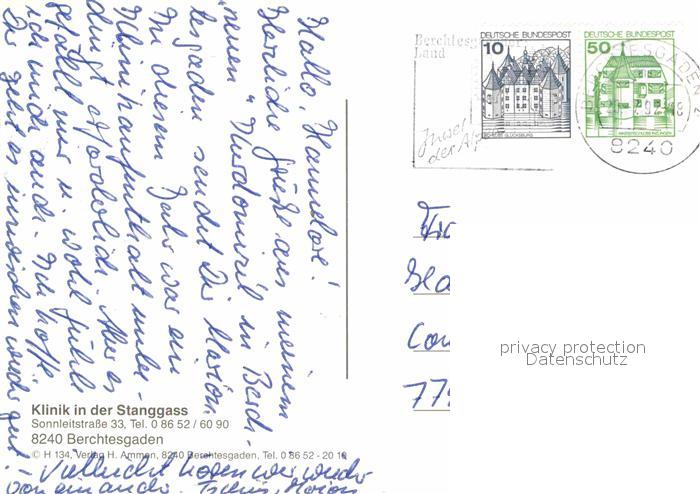 Hallo, Hannelore!
Herzliche Grüße aus meinem
"neuen" Kurdomizil in Berch-
tesgaden sendet Dir Marion.
In diesem Jahr war ein
Klinikaufenthalt unbe-
dingt erforderlich. Aber es
gefällt mir u. wohl fühle
ich mich auch. Ich hoffe
Dir geht es inzwischen wieder gut!
– Vielleicht hören wir wieder
voneinander. Tschüs, Marion
Klinik in der Stanggass
Sonnleitstraße 33, Tel. 0 86 52 / 60 90
8240 Berchtesgaden
© H 134, Verlag H. Ammon, 8240 Berchtesgaden, Tel. 0 86 52 - 20 10
Berchtesgadener
Land
Insel
der Alp
DEUTSCHE BUNDESPOST
10
SCHLOSS GLÜCKSBURG
DEUTSCHE BUNDESPOST
50
WASSERSCHLOSS INZLINGEN
BERCHTESGADEN 2
8240
privacy protection
Datenschutz